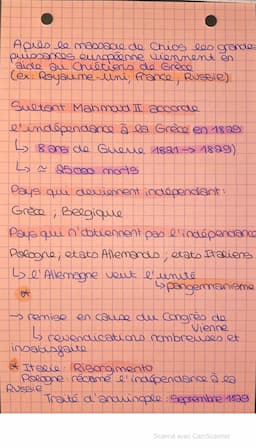 Après le massacre de Chios les grande
puissances européenne viennent en
aide au Chrétiens de Grèce
(ex: Royaume-Uni, France, Russie)
Sultant Mahmoud II accorde
l'indépendance à la Grèce en 1829
↳ 8 ans de Guerre 1821 → 1829)
↳ ≈ 25000 morts
Pays qui deviennent indépendant:
Grèce, Belgique
Pays qui n'obtiennent pas l'indépendance
Pologne, etats Allemands, etats Italiens
↳ l'Allemagne veut l'unité
↳ pangermanisme
*
→ remise en cause du Congrès de
Vienne
↳ revendications nombreuses et
insatisfaite
* Italie: Risorgimento
Pologne réclame l'indépendance à la
Russie
Traité d'andrinople: Septembre 1829
Scanné avec CamScanner